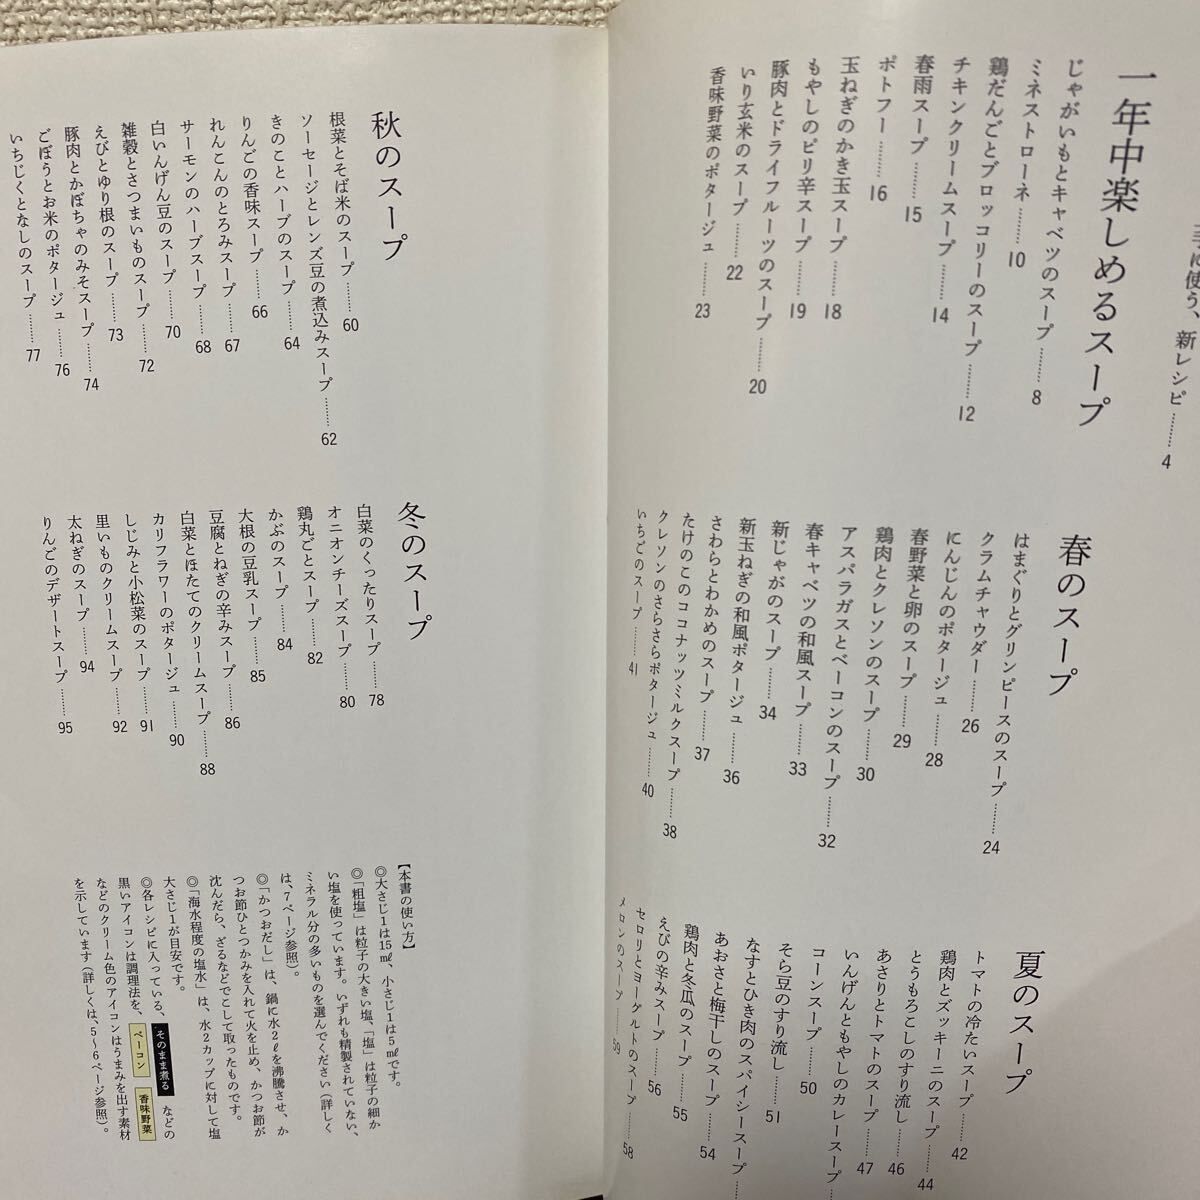 手に使う、新レシピ……4
一年中楽しめるスープ
じゃがいもとキャベツのスープ……8
ミネストローネ……10
鶏だんごとブロッコリーのスープ……12
チキンクリームスープ……14
春雨スープ……15
ポトフー……16
玉ねぎのかき玉スープ……18
もやしのピリ辛スープ……19
豚肉とドライフルーツのスープ……20
いり玄米のスープ……22
香味野菜のポタージュ……23
春のスープ
はまぐりとグリンピースのスープ……24
クラムチャウダー……26
にんじんのポタージュ……28
春野菜と卵のスープ……29
鶏肉とクレソンのスープ……30
アスパラガスとベーコンのスープ……32
春キャベツの和風スープ……33
新じゃがのスープ……34
新玉ねぎの和風ポタージュ……36
さわらとわかめのスープ……37
たけのこのココナッツミルクスープ……38
クレソンのさらさらポタージュ……40
いちごのスープ……41
夏のスープ
トマトの冷たいスープ……42
鶏肉とズッキーニのスープ……44
とうもろこしのすり流し……46
あさりとトマトのスープ……47
いんげんともやしのカレースープ……
コーンスープ……50
そら豆のすり流し……51
なすとひき肉のスパイシースープ……
あおさと梅干しのスープ……54
鶏肉と冬瓜のスープ……55
えびの辛みスープ……56
セロリとヨーグルトのスープ……58
メロンのスープ……59
秋のスープ
根菜とそば米のスープ……60
ソーセージとレンズ豆の煮込みスープ……62
きのことハーブのスープ……64
りんごの香味スープ……66
れんこんのとろみスープ……67
サーモンのハーブスープ……68
白いんげん豆のスープ……70
雑穀とさつまいものスープ……72
えびとゆり根のスープ……73
豚肉とかぼちゃのみそスープ……74
ごぼうとお米のポタージュ……76
いちじくとなしのスープ……77
冬のスープ
白菜のくったりスープ……78
オニオンチーズスープ……80
鶏丸ごとスープ……82
かぶのスープ……84
大根の豆乳スープ……85
豆腐とねぎの辛みスープ……86
白菜とほたてのクリームスープ……88
カリフラワーのポタージュ……90
しじみと小松菜のスープ……91
里いものクリームスープ……92
太ねぎのスープ……94
りんごのデザートスープ……95
【本書の使い方】
◎大さじ1は15㎖、小さじ1は5㎖です。
◎「粗塩」は粒子の大きい塩、「塩」は粒子の細か
い塩を使っています。いずれも精製されていない、
ミネラル分の多いものを選んでください（詳しく
は、7ページ参照）。
◎「かつおだし」は、鍋に水2ℓを沸騰させ、か
つお節ひとつかみを入れて火を止め、かつお節が
沈んだら、ざるなどでこして取ったものです。
◎「海水程度の塩水」は、水2カップに対して塩
大さじ1が目安です。
◎各レシピに入っている、 そのまま煮る などの
黒いアイコンは調理法を、 ベーコン 香味野菜
などのクリーム色のアイコンはうまみを出す素材
を示しています（詳しくは、5〜6ページ参照）。